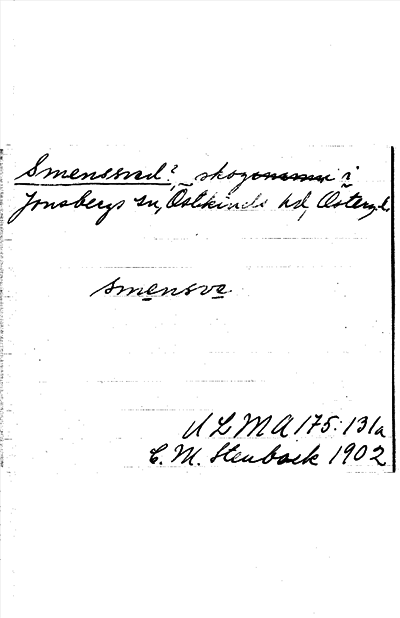 Smenssved?, skog i
Jonsbergs sn, Östkinds hd, Östergl.
smensve
ULMA 175:131a
C. M. Stenbock 1902